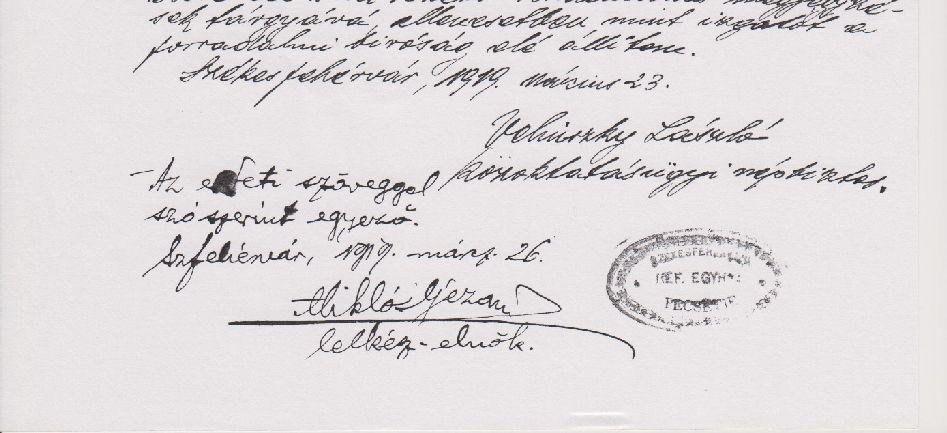 sek tárgyává, ellenesetben mint izgatót a
forradalmi biróság elé állitom.
Székesfehérvár, 1919. március 23.
Velinszky László
közoktatásügyi népbiztos.
Az eredeti szöveggel
szószerint egyező.
Szfehérvár, 1919. márcz. 26.
Miklós Géza
lelkész-elnök.
SZÉKESFEHÉRVÁRI
REF. EGYHÁZ
PECSÉTJE